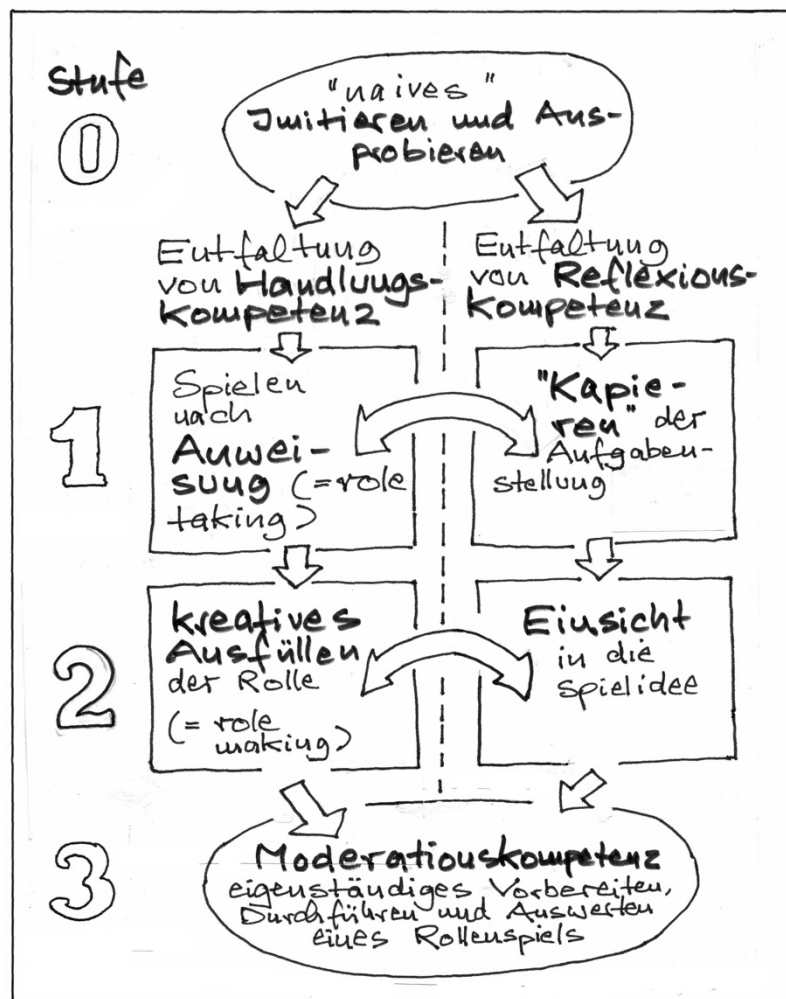 Stufe
0
"naives"
Imitieren und Aus-
probieren
Entfaltung
von Handlungs-
kompetenz
Entfaltung
von Reflexions-
kompetenz
1
Spielen
nach
Anwei-
sung (=role
taking)
"Kapie-
ren" der
Aufgaben-
stellung
2
kreatives
Ausfüllen
der Rolle
(= role
making)
Einsicht
in die
Spielidee
3
Moderationskompetenz
eigenständiges Vorbereiten,
Durchführen und Auswerten
eines Rollenspiels